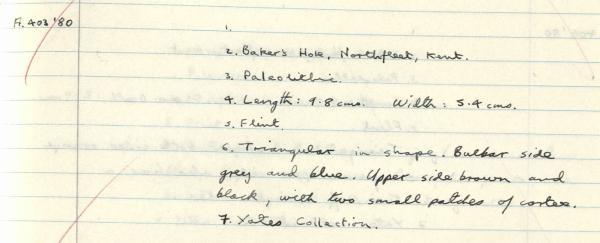 A. 403 '80
1.
2. Baker's Hole, Northfleet, Kent.
3. Paleolithic.
4. Length: 9.8 cms. Width: 5.4 cms.
5. Flint.
6. Triangular in shape. Bulbar side
grey and blue. Upper side brown and
black, with two small patches of cortex.
7. Yates Collection.